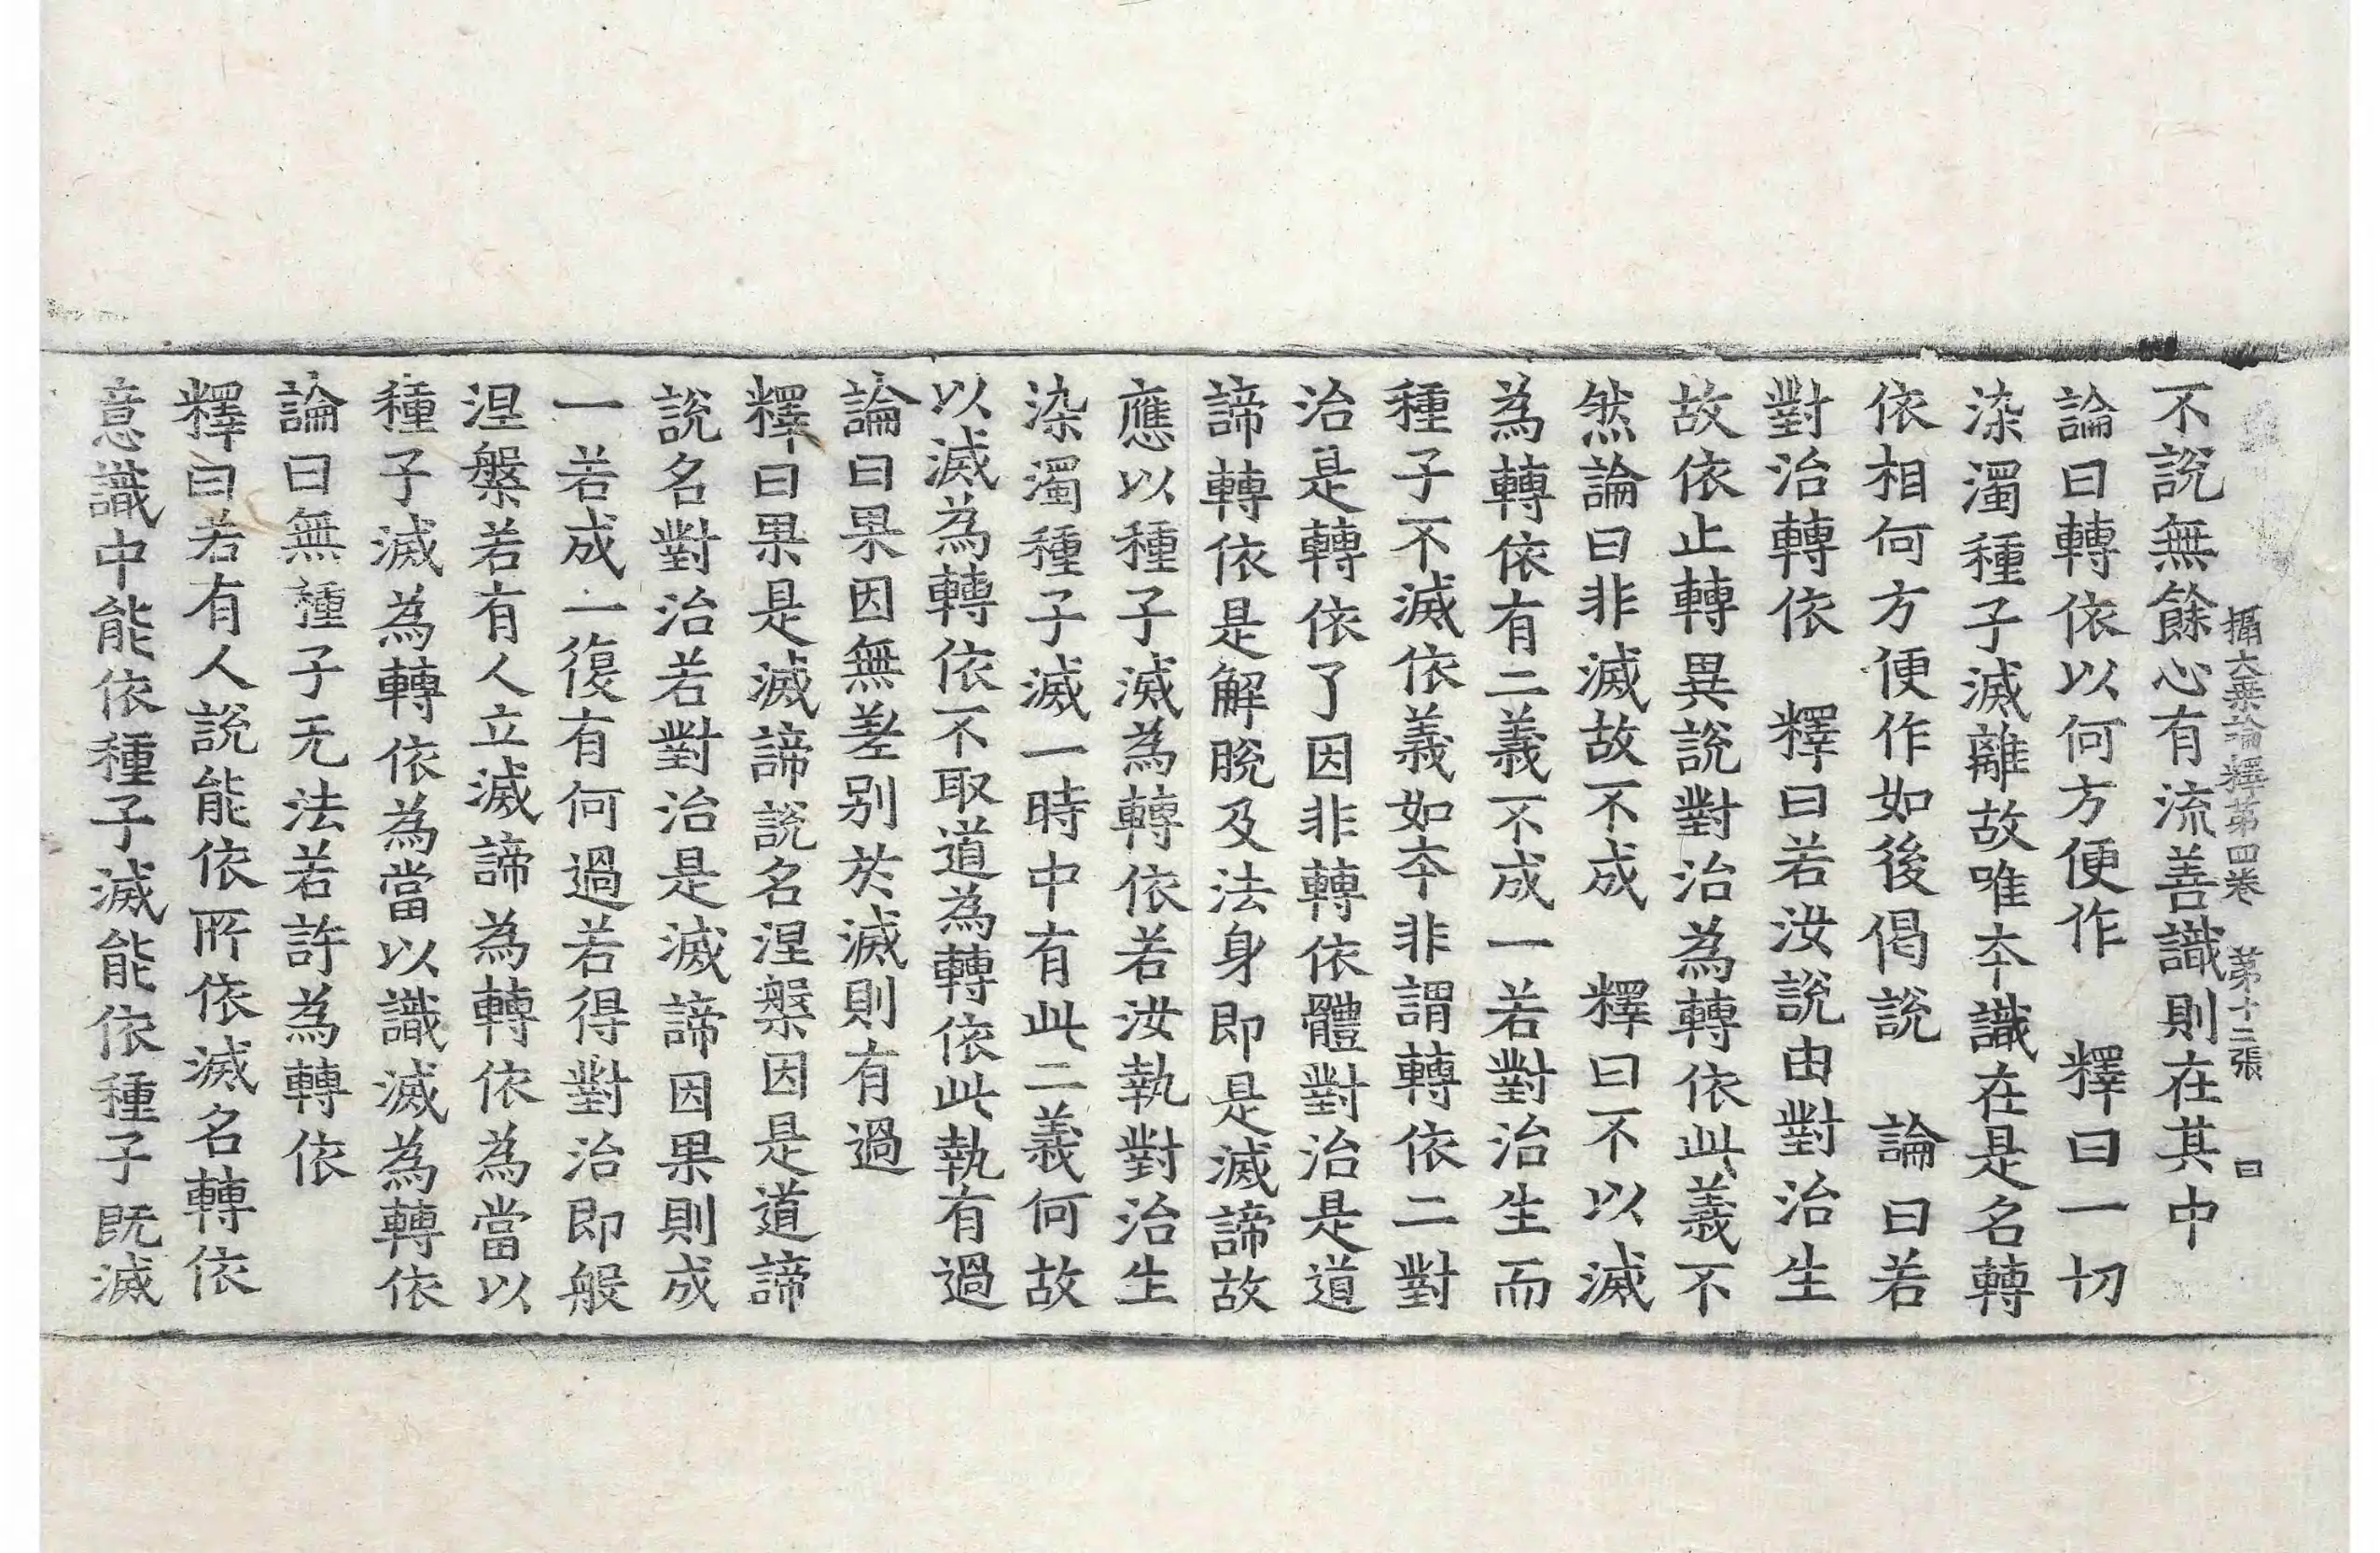 攝大乗論釋第四卷　第十二張　曰
不說無餘心有流善識則在其中
論曰轉依以何方便作　釋曰一切
染濁種子滅離故唯夲識在是名轉
依相何方便作如後偈說　論曰若
對治轉依　釋曰若汝說由對治生
故依止轉異說對治為轉依此義不
然論曰非滅故不成　釋曰不以滅
為轉依有二義不成一若對治生而
種子不滅依義如夲非謂轉依二對
治是轉依了因非轉依體對治是道
諦轉依是解脫及法身即是滅諦故
應以種子滅為轉依若汝執對治生
染濁種子滅一時中有此二義何故
以滅為轉依不取道為轉依此執有過
論曰果因無差别於滅則有過
釋曰果是滅諦說名涅槃因是道諦
說名對治若對治是滅諦因果則成
一若成一復有何過若得對治即般
涅槃若有人立滅諦為轉依為當以
種子滅為轉依為當以識滅為轉依
論曰無種子无法若許為轉依
釋曰若有人說能依所依滅名轉依
意識中能依種子滅能依種子既滅